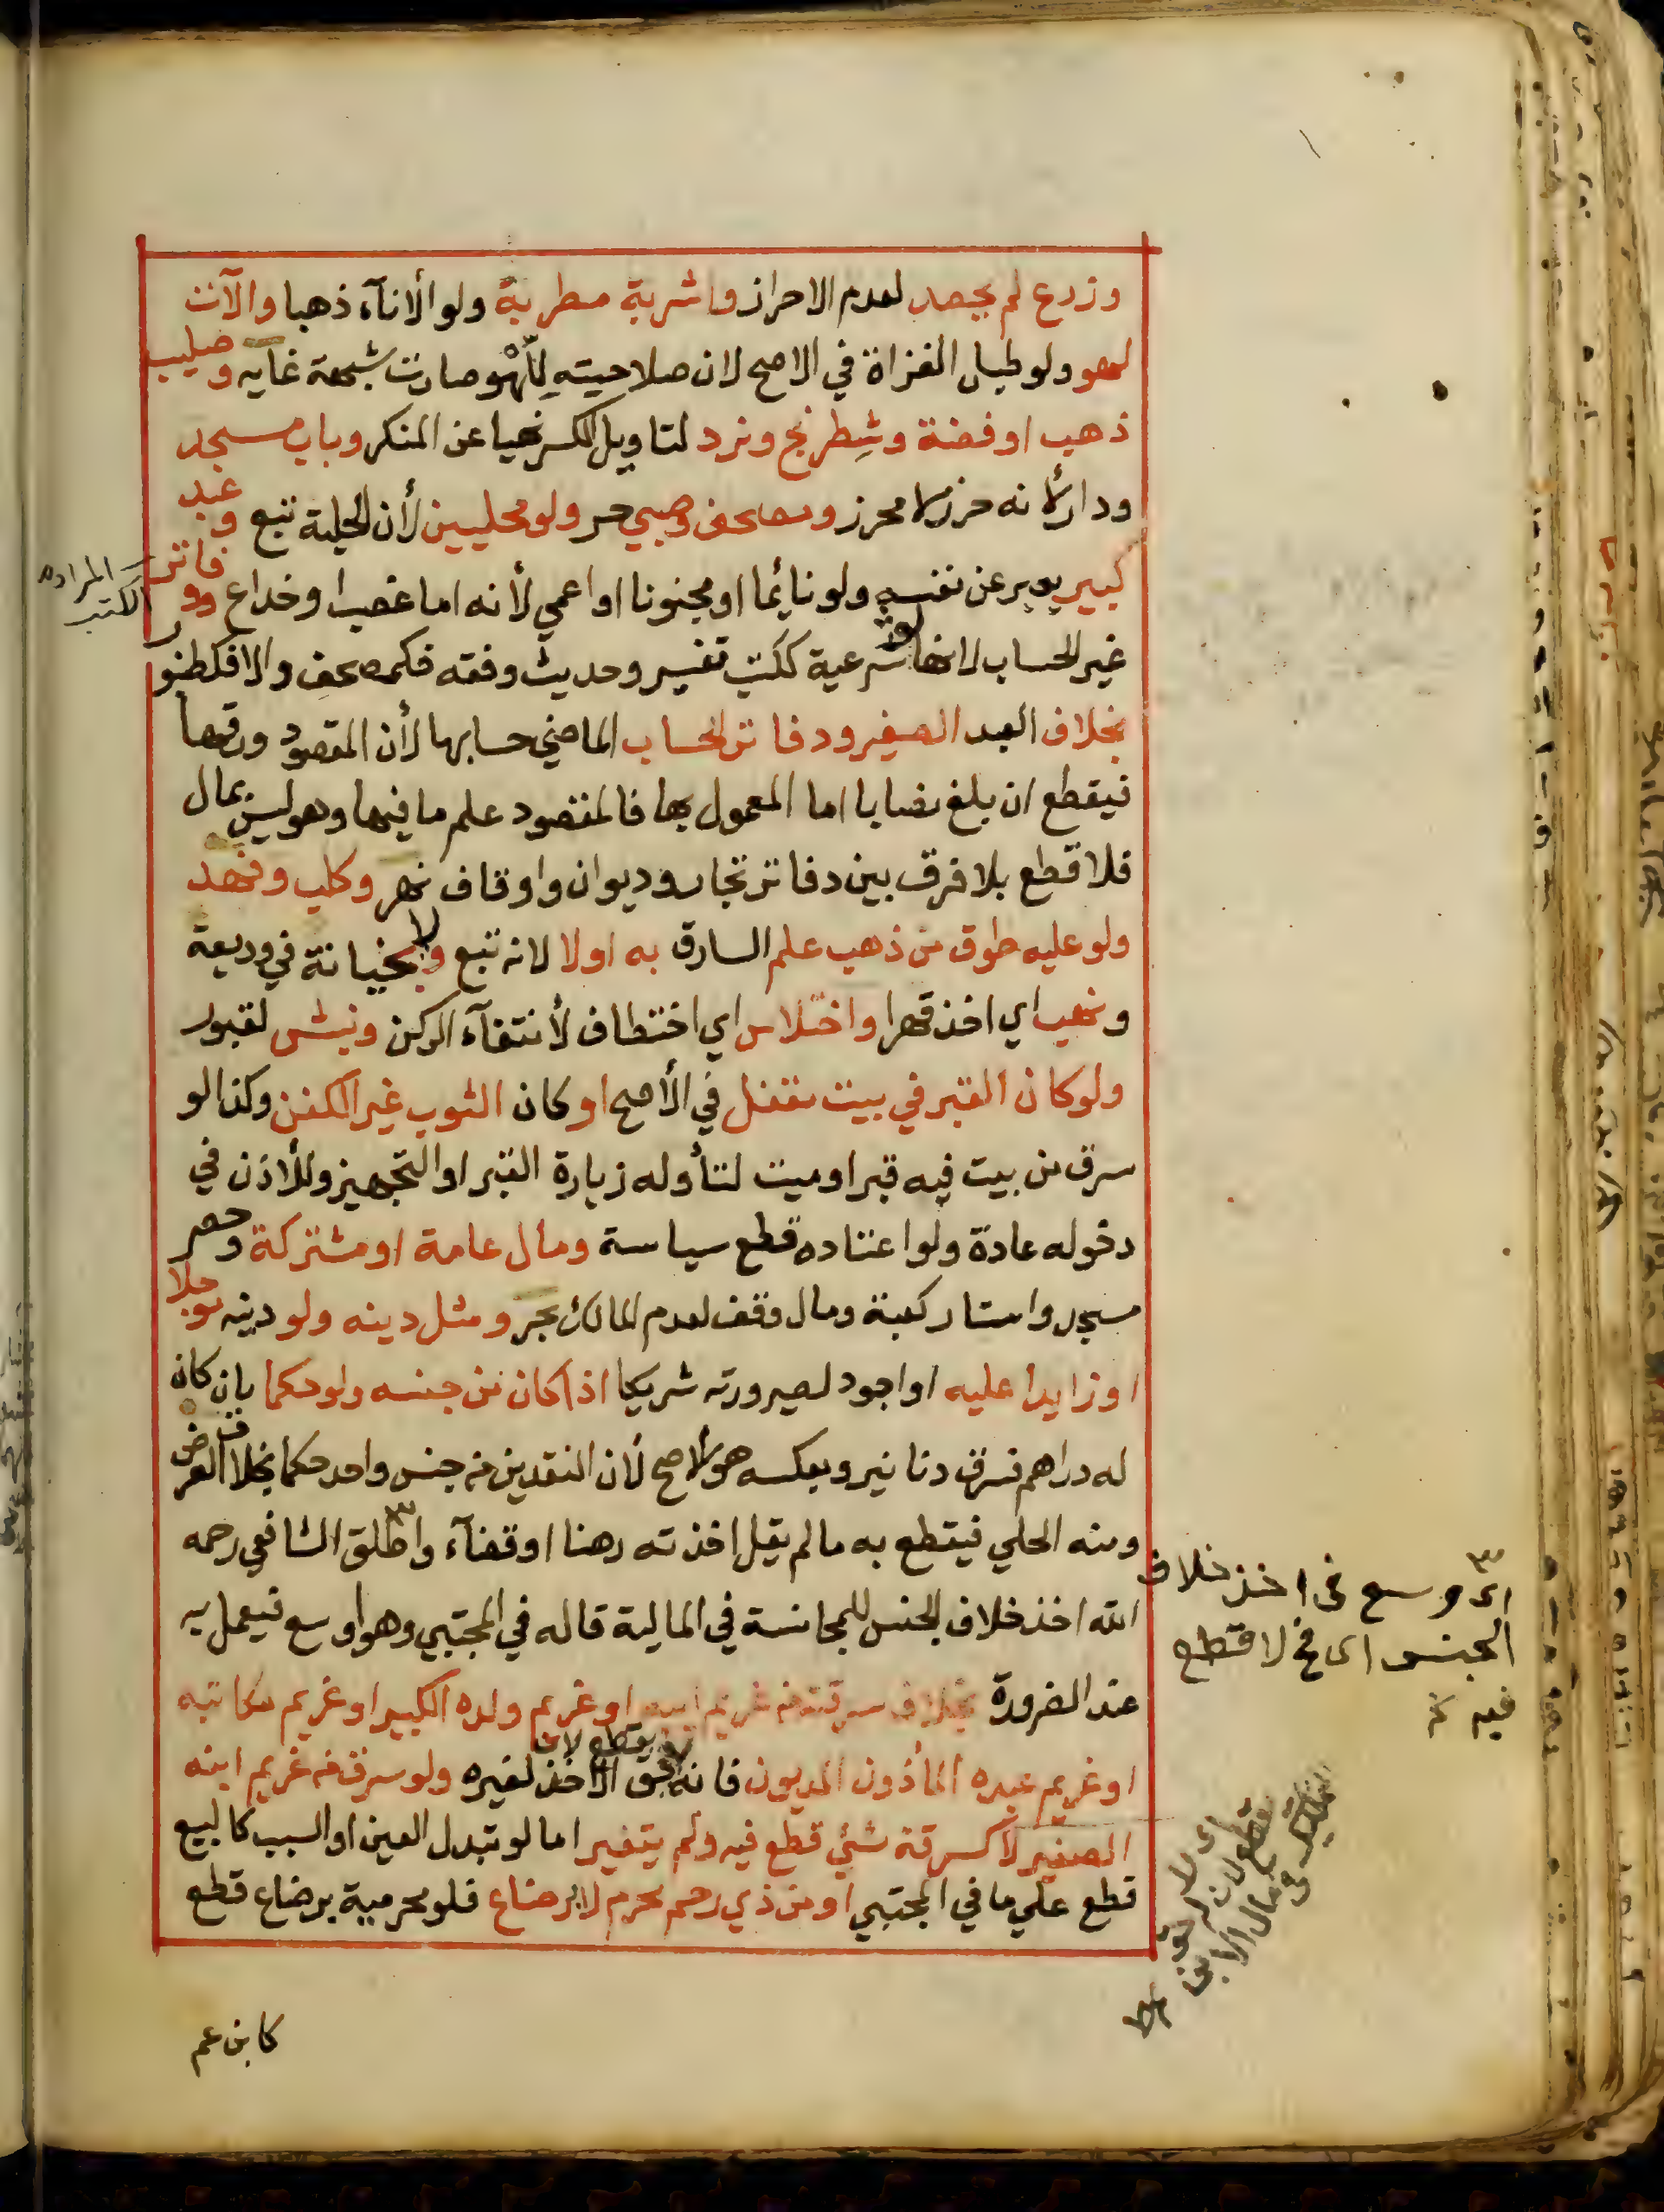 وزرع لم يحصد لعدم الاحراز واشربة مطربة ولو الأناء ذهبا والآت
لهو ولو طبل الغزاة في الاصح لان صلاحيته للهو صارت شبهة غايه وصليب
ذهب او فضة وشطرنج ونرد لتاويل الكسر نهيا عن المنكر وباب مسجد
ودار لأنه حرز لا محرز ومصحف وصبي حر ولو محليين لأن الحلية تبع وعبد
كبير يعبر عن نفسه ولو نائما او مجنونا او اعمي لأنه اما غصب او خداع ودفاتر
غير الحساب لانها لو شرعية ككتب تفسير وحديث وفقه فكمصحف والا فكطنبور
بخلاف العبد الصغير ودفاتر الحساب الماضي حسابها لأن المقصود ورقها
فيقطع ان بلغ نصابا اما المعمول بها فالمقصود علم ما فيها وهو ليس بمال
فلا قطع بلا فرق بين دفاتر تجار وديوان واوقاف نهر وكلب وفهد
ولو عليه طوق من ذهب علم السارق به اولا لانه تبع ولا بخيانة في وديعة
ونهب اي اخذ قهرا واختلاس اي اختطاف لأنتفآء الركن ونبش لقبور
ولو كان القبر في بيت مقفل في الأصح او كان الثوب غير الكفن وكذا لو
سرق من بيت فيه قبر او ميت لتأوله زيارة القبر او التجهيز وللأذن في
دخوله عادة ولو اعتاده قطع سياسة ومال عامة او مشتركة وحصر
مسجد واستار كعبة ومال وقف لعدم المالك بحر ومثل دينه ولو دينه مؤجلا
او زايدا عليه او اجود لصيرورته شريكا اذا كان من جنسه ولو حكما بان كان
له دراهم فسرق دنانير وبعكسه هو الاصح لأن النقدين من جنس واحد حكما بخلاف العرض
ومنه الحلي فيقطع به ما لم يقل اخذته رهنا او قضآء واطلق الشافعي رحمه
الله اخذ خلاف الجنس للمجانسة في المالية قاله في المجتبي وهو اوسع فيعمل به
عند الضرورة بخلاف سرقته من غريم ابيه او غريم ولده الكبير او غريم مكاتبه
او غريم عبده المأذون المديون فانه يقطع لان حق الأخذ لغيره ولو سرق من غريم ابنه
الصغير لا كسرقة شئ قطع فيه ولم يتغير اما لو تبدل العين او السبب كالبيع
قطع علي ما في المجتبي او من ذي رحم محرم لا برضاع فلو محرمية برضاع قطع
كابن عم
المراد به
الكتب
اى وسع فى اخذ خلاف
الجنس اى فح لا قطع
فيه